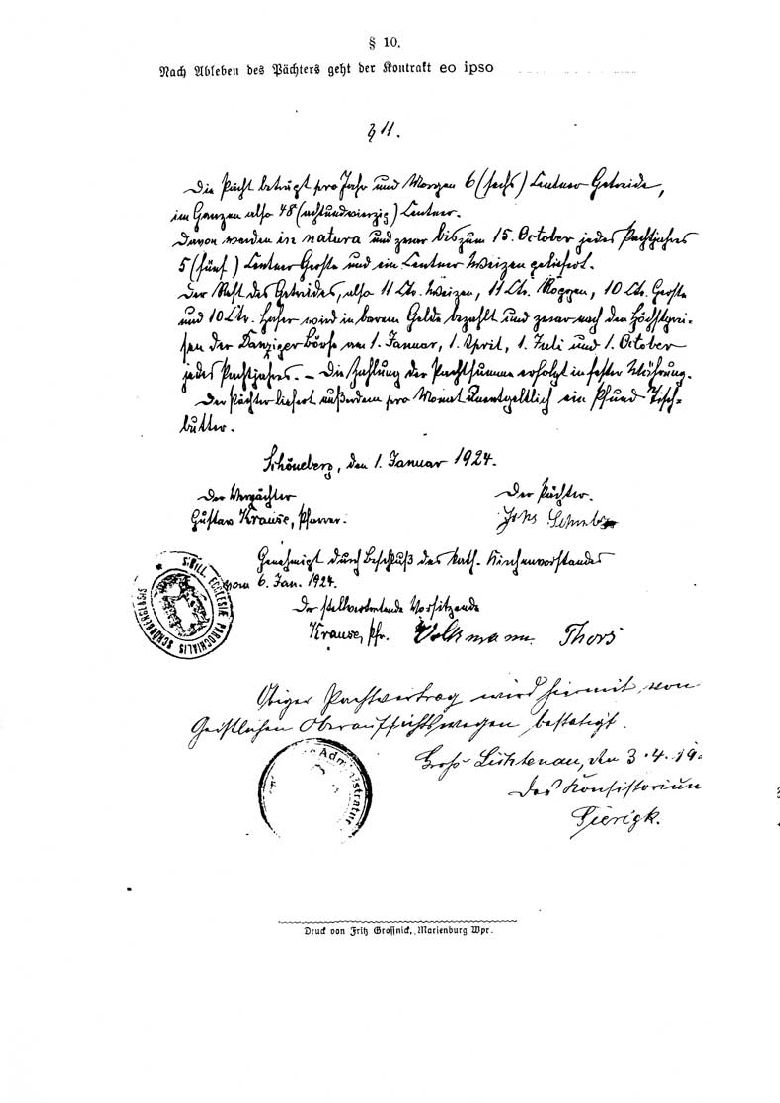 § 10.
Nach Ableben des Pächters geht der Kontrakt eo ipso
§ 11.
Die Pacht beträgt pro Jahr und Morgen 6 (sechs) Centner Getreide,
im Ganzen also 48 (achtundvierzig) Centner.
Davon werden in natura und zwar bis zum 15. October jedes Pachtjahres
5 (fünf) Centner Gerste und ein Centner Weizen geliefert.
Der Rest des Getreides, also 11 Ctr. Weizen, 11 Ctr. Roggen, 10 Ctr. Gerste
und 10 Ctr. Hafer wird in barem Gelde bezahlt und zwar nach den Höchstprei-
sen der Danziger Börse am 1. Januar, 1. April, 1. Juli und 1. October
jedes Pachtjahres. – Die Zahlung der Pachtsumme erfolgt in fester Währung.
Der Pächter liefert außerdem pro Monat unentgeltlich ein Pfund Tisch-
butter.
Schöneberg, den 1. Januar 1924.
Der Verpächter
Der Pächter.
Gustav Krause, Pfarrer.
Joh
Genehmigt durch Beschluß des kath. Kirchenvorstandes
vom 6. Jan. 1924.
Der stellvertretende Vorsitzende
Krause, Pfr. Volkmann Thors
SIGILL. ECCLESIAE PAROCHIALIS
Obiger Pachtvertrag wird hiermit von
Geistlichen Oberaufsichtswegen bestätigt.
Groß Lichtenau, den 3.4.19
Das Konsistorium
Pierigk.
Administratur
Druck von Fritz Grossnick, Marienburg Wpr.